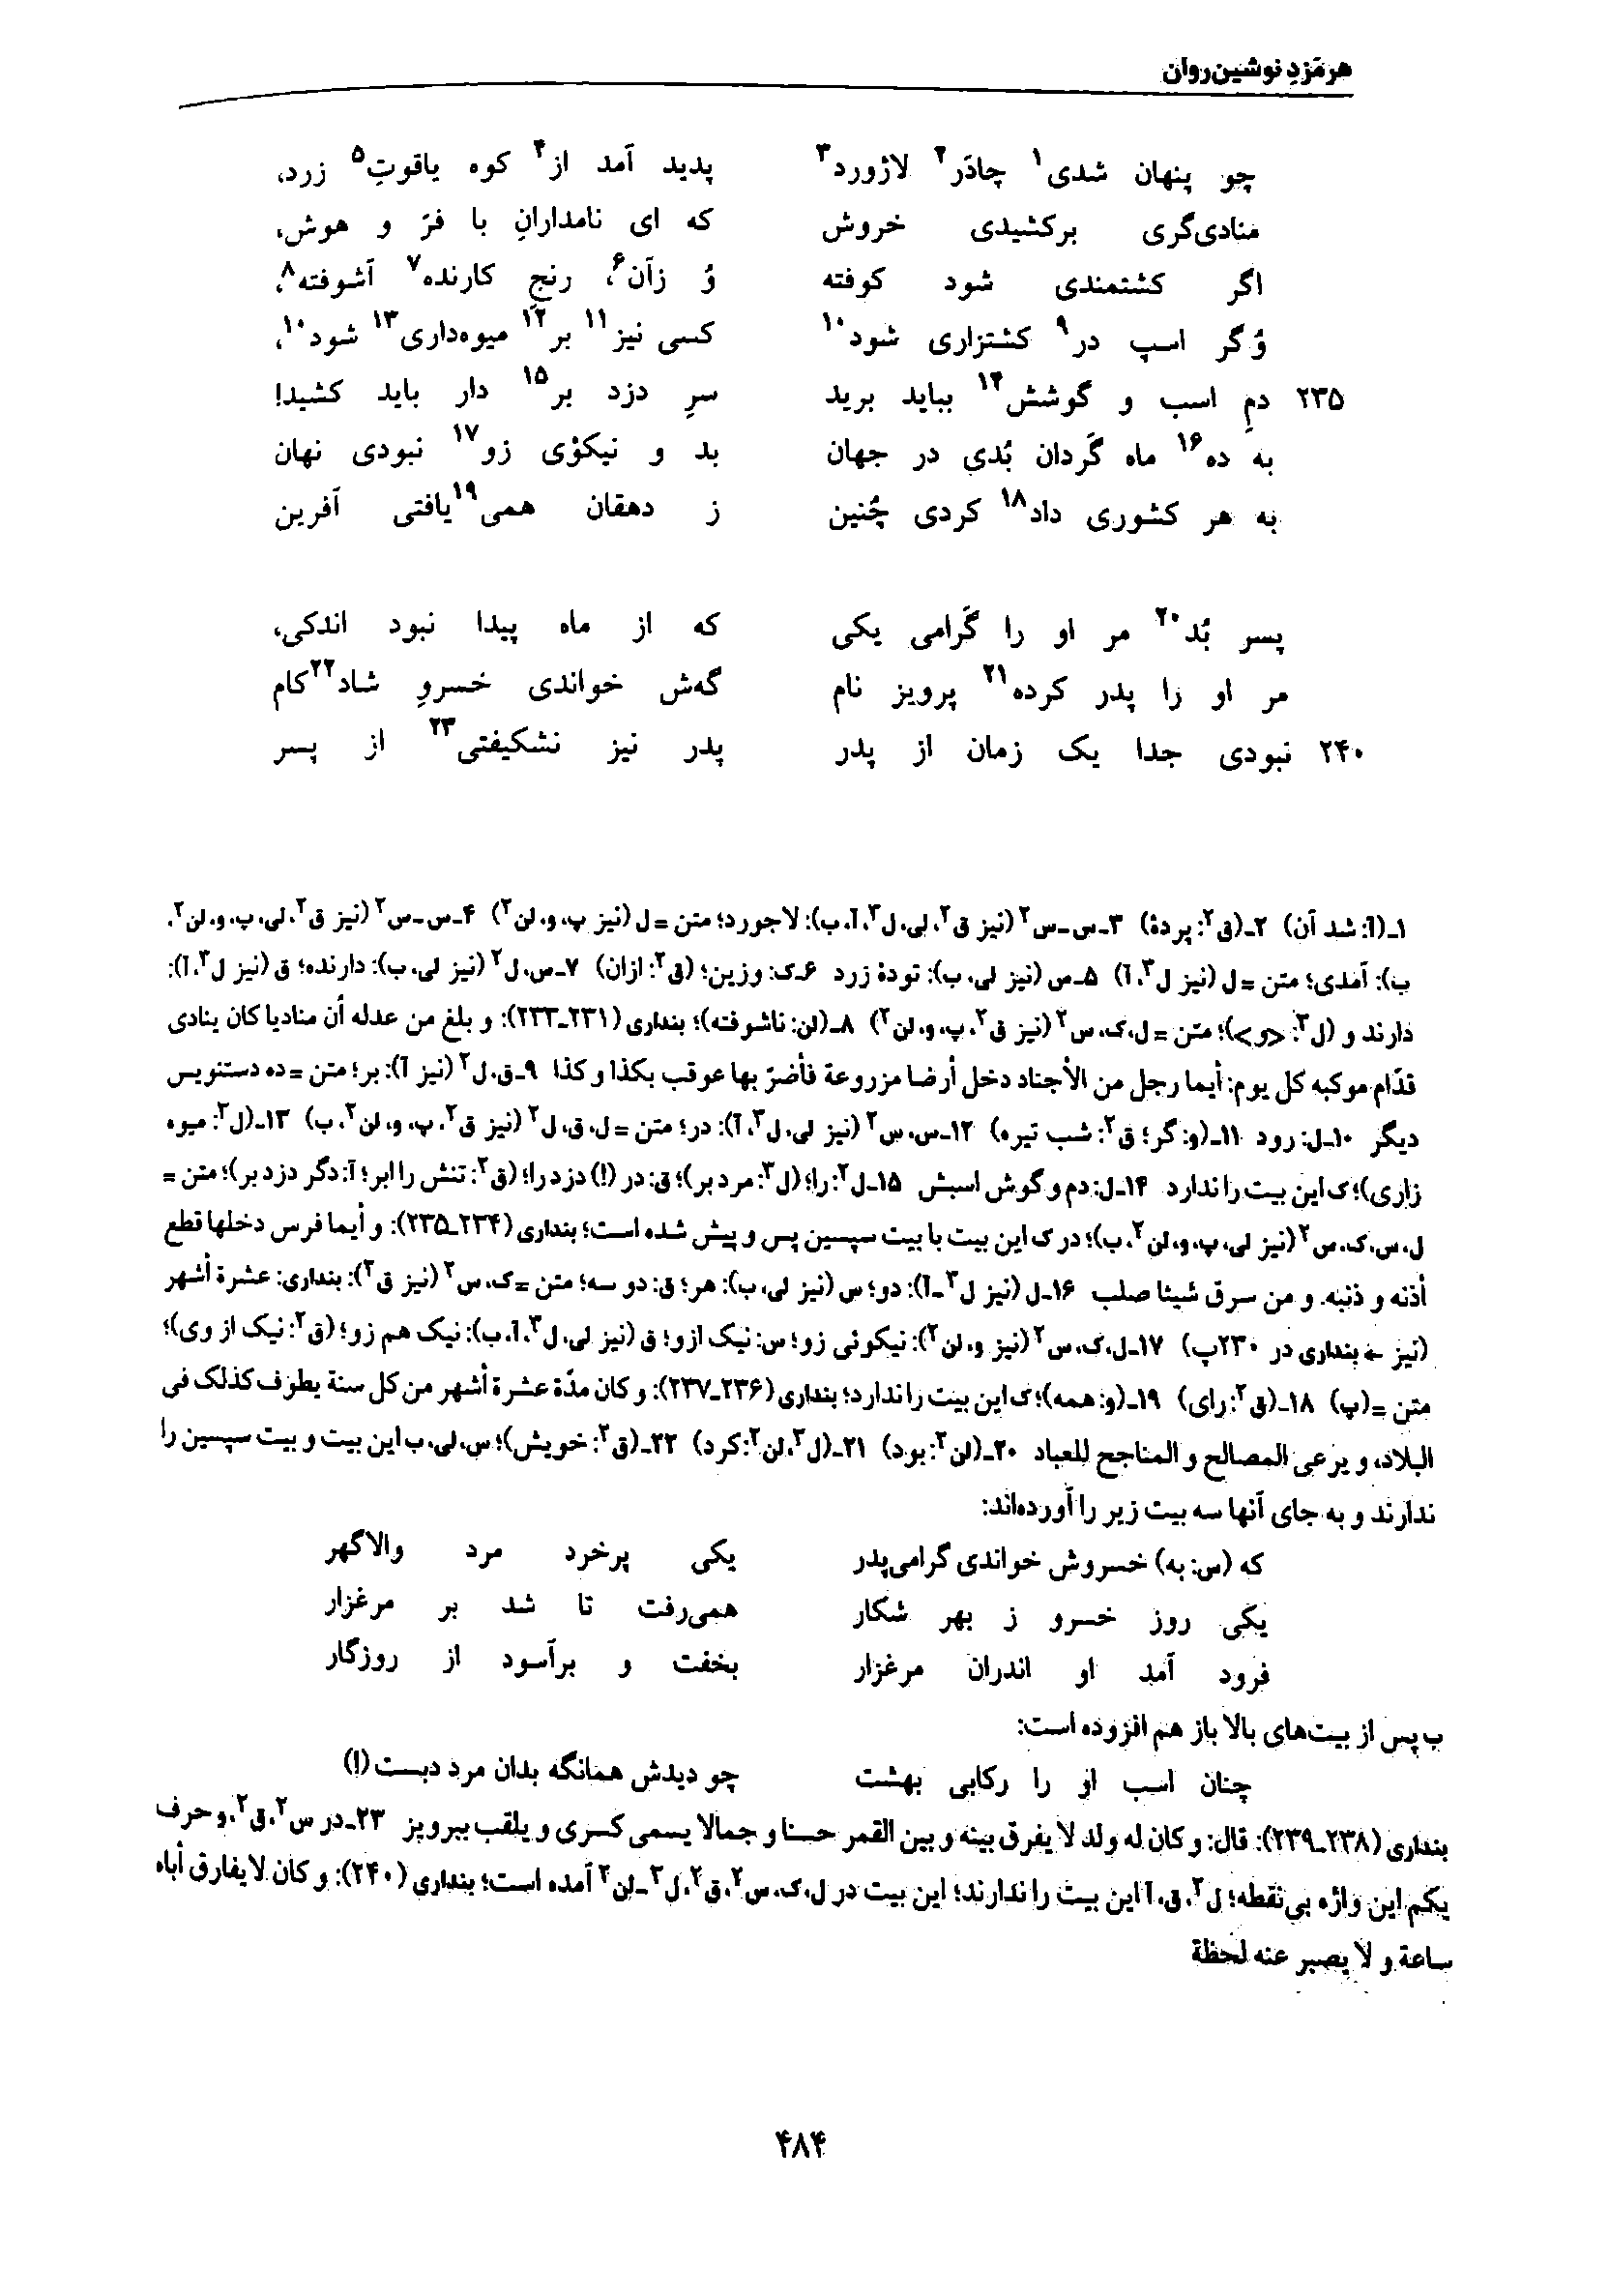 هرمَزدِ نوشین‌روان
چو پنهان شدی۱ چادَر۲ لاژورد۳ پدید آمد از۴ کوه یاقوتِ۵ زرد،
منادی‌گری برکشیدی خروش که ای نامدارانِ با فرّ و هوش،
اگر کشتمندی شود کوفته وُ زآن۶، رنجِ کارنده۷ آشوفته۸،
وُگر اسپ در۹ کشتزاری شود۱۰ کسی نیز۱۱ بر۱۲ میوه‌داری۱۳ شود۱۰،
۲۳۵ دمِ اسب و گوشش۱۴ بباید برید سرِ دزد بر۱۵ دار باید کشید!
به ده۱۶ ماه گَردان بُدی در جهان بد و نیکوٗی زو۱۷ نبودی نهان
به هر کشوری داد۱۸ کردی چُنین ز دهقان همی۱۹یافتی آفرین
پسر بُد۲۰ مر او را گَرامی یکی که از ماه پیدا نبود اندکی،
مر او را پدر کرده۲۱ پرویز نام گه‌ش خواندی خسروِ شاد۲۲کام
۲۴۰ نبودی جدا یک زمان از پدر پدر نیز نشکیفتی۲۳ از پسر
۱ـ(آ: شد آن) ۲ـ(ق۲: پردهٔ) ۳ـس-س۲ (نیز ق۲، لی، ل۳، آ، ب): لاجورد؛ متن = ل (نیز پ، و، لن۲) ۴ـس-س۲ (نیز ق۲، لی، پ، و، لن۲،
ب): آمدی؛ متن = ل (نیز ل۳، آ) ۵ـس (نیز لی، ب): تودهٔ زرد ۶ـک: وزین؛ (ق۲: ازان) ۷ـس، ل۲ (نیز لی، ب): دارنده؛ ق (نیز ل۳، آ):
دارند و (ل۳: <و>)؛ متن = ل، ک، س۲ (نیز ق۲، پ، و، لن۲) ۸ـ(لن: ناشوفته)؛ بنداری (۲۳۱ـ۲۳۳): و بلغ من عدله أن منادیا کان ینادی
قدّام موکبه کل یوم: أیما رجل من الأجناد دخل أرضا مزروعة فأضرّ بها عوقب بکذا و کذا ۹ـق، ل۲ (نیز آ): بر؛ متن = ده دستنویس
دیگر ۱۰ـل: رود ۱۱ـ(و: گر؛ ق۲: شب تیره) ۱۲ـس، س۲ (نیز لی، ل۳، آ): در؛ متن = ل، ق، ل۲ (نیز ق۲، پ، و، لن۲، ب) ۱۳ـ(ل۳: میوه
زاری)؛ ک این بیت را ندارد ۱۴ـل: دم و گوش اسبش ۱۵ـل۲: را؛ (ل۳: مرد بر)؛ ق: در (!) دزد را؛ (ق۲: تنش را ابر؛ آ: دگر دزد بر)؛ متن =
ل، س، ک، س۲ (نیز لی، پ، و، لن۲، ب)؛ در ک این بیت با بیت سپسین پس و پیش شده است؛ بنداری (۲۳۴ـ۲۳۵): و أیما فرس دخلها قطع
أذنه و ذنبه. و من سرق شیئا صلب ۱۶ـل (نیز ل۳ـآ): دو؛ س (نیز لی، ب): هر؛ ق: دو سه؛ متن = ک، س۲ (نیز ق۲): بنداری: عشرة أشهر
(نیز ← بنداری در ۲۳۰پ) ۱۷ـل، ک، س۲ (نیز و، لن۲): نیکوئی زو؛ س: نیک ازو؛ ق (نیز لی، ل۳، آ، ب): نیک هم زو؛ (ق۲: نیک از وی)؛
متن = (پ) ۱۸ـ(ق۲: رای) ۱۹ـ(و: همه)؛ ک این بیت را ندارد؛ بنداری (۲۳۶ـ۲۳۷): و کان مدّة عشرة أشهر من کل سنة یطوف کذلک فی
البلاد، و یرعی المصالح و المناجح للعباد ۲۰ـ(لن۲: بود) ۲۱ـ(ل۳، لن۲: کرد) ۲۲ـ(ق۲: خویش)؛ س، لی، ب این بیت و بیت سپسین را
ندارند و به جای آنها سه بیت زیر را آورده‌اند:
که (س: به) خسروش خواندی گرامی‌پدر یکی پرخرد مرد والاگهر
یکی روز خسرو ز بهر شکار همی‌رفت تا شد بر مرغزار
فرود آمد او اندران مرغزار بخفت و برآسود از روزگار
ب پس از بیت‌های بالا باز هم افزوده است:
چنان اسب او را رکابی بهشت چو دیدش همانگه بدان مرد دبست (!)
بنداری (۲۳۸ـ۲۳۹): قال: و کان له ولد لا یفرق بینه و بین القمر حسنا و جمالا یسمی کسری و یلقب ببرویز ۲۳ـدر س۲، ق۲، و حرف
یکم این واژه بی‌نقطه؛ ل۲، ق، آ این بیت را ندارند؛ این بیت در ل، ک، س۲، ق۲، ل۳ـلن۲ آمده است؛ بنداری (۲۴۰): و کان لا یفارق أباه
ساعة و لا یصبر عنه لحظة
۴۸۴